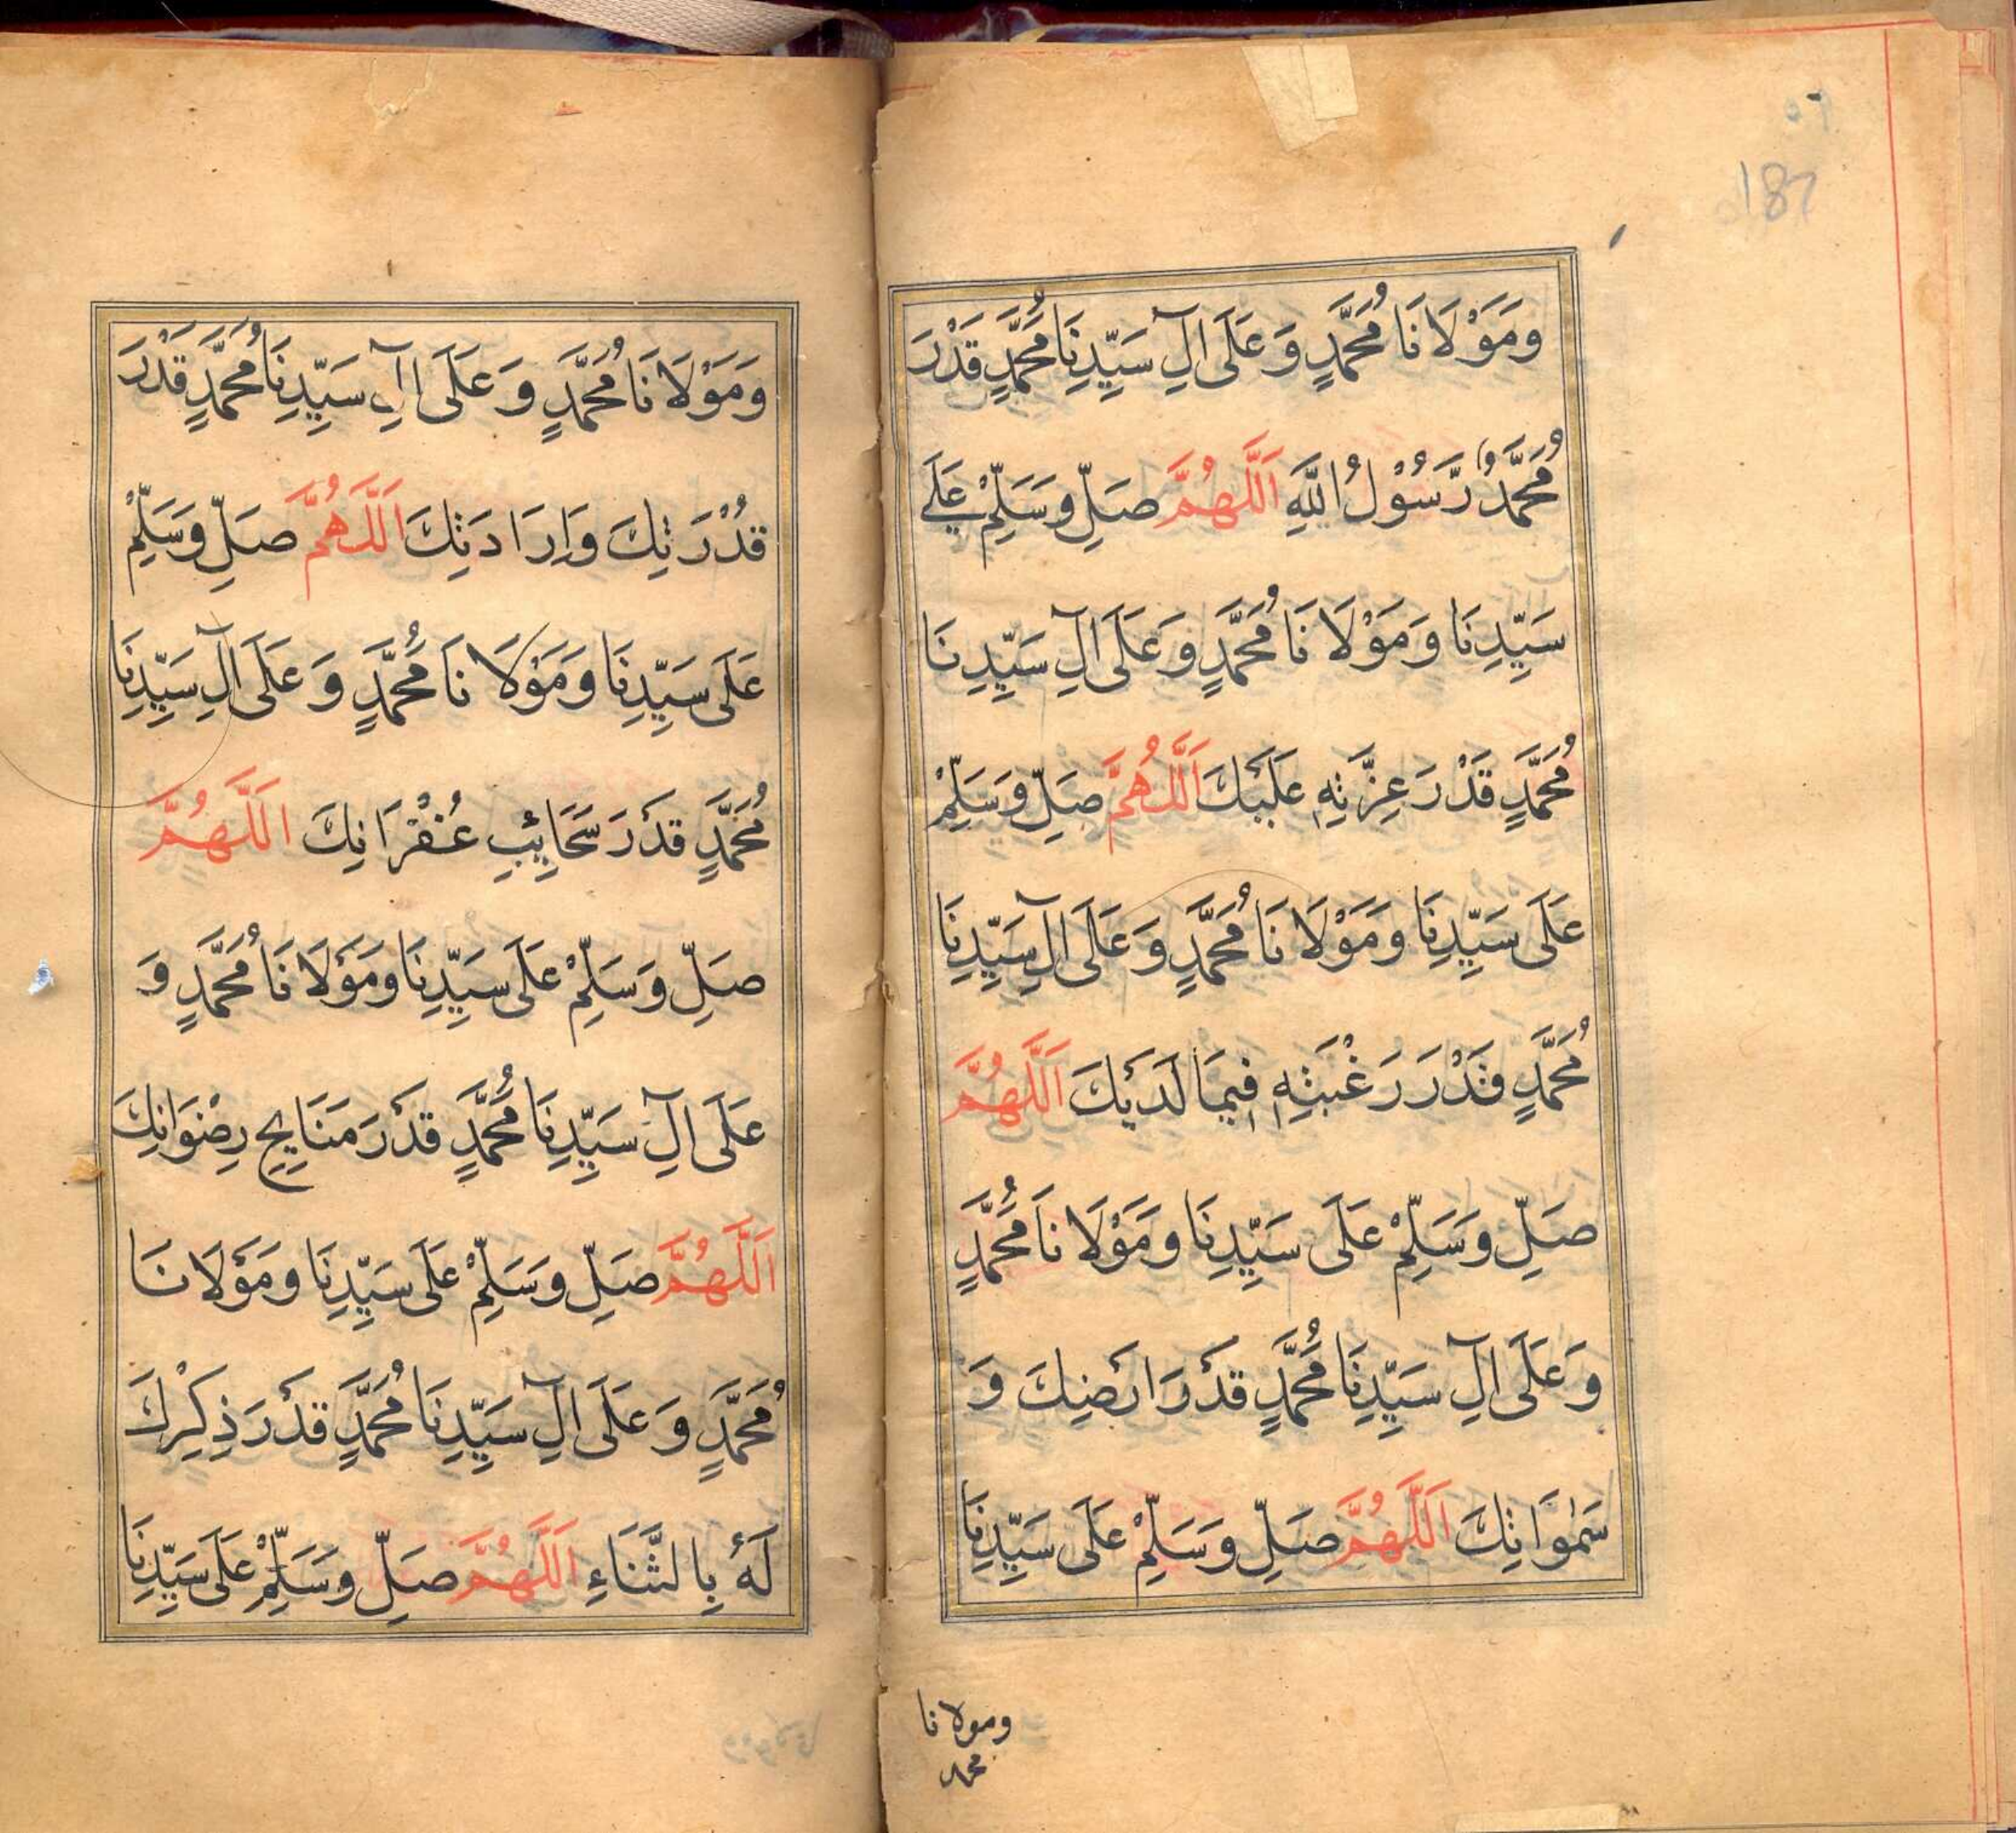 187
وَمَوْلَانَا مُحَمَّدٍ وَعَلَى اٰلِ سَيِّدِنَا مُحَمَّدٍ قَدْرَ
مُحَمَّدٌ رَّسُوْلُ اللّٰهِ اَللّٰهُمَّ صَلِّ وَسَلِّمْ عَلٰے
سَيِّدِنَا وَمَوْلَانَا مُحَمَّدٍ وَعَلَى اٰلِ سَيِّدِنَا
مُحَمَّدٍ قَدْرَ عِزَّتِهٖ عَلَيْكَ اَللّٰهُمَّ صَلِّ وَسَلِّمْ
عَلَى سَيِّدِنَا وَمَوْلَانَا مُحَمَّدٍ وَعَلَى اٰلِ سَيِّدِنَا
مُحَمَّدٍ قَدْرَ رَغْبَتِهٖ فِيْمَا لَدَيْكَ اَللّٰهُمَّ
صَلِّ وَسَلِّمْ عَلَى سَيِّدِنَا وَمَوْلَانَا مُحَمَّدٍ
وَعَلَى اٰلِ سَيِّدِنَا مُحَمَّدٍ قَدْرَ اَرْضِكَ وَ
سَمٰوَاتِكَ اَللّٰهُمَّ صَلِّ وَسَلِّمْ عَلَى سَيِّدِنَا
ومولانا
محمد
وَمَوْلَانَا مُحَمَّدٍ وَعَلَى اٰلِ سَيِّدِنَا مُحَمَّدٍ قَدْرَ
قُدْرَتِكَ وَاِرَادَتِكَ اَللّٰهُمَّ صَلِّ وَسَلِّمْ
عَلَى سَيِّدِنَا وَمَوْلَانَا مُحَمَّدٍ وَعَلَى اٰلِ سَيِّدِنَا
مُحَمَّدٍ قَدْرَ سَحَائِبِ غُفْرَانِكَ اَللّٰهُمَّ
صَلِّ وَسَلِّمْ عَلَى سَيِّدِنَا وَمَوْلَانَا مُحَمَّدٍ وَ
عَلَى اٰلِ سَيِّدِنَا مُحَمَّدٍ قَدْرَ مَنَايِحِ رِضْوَانِكَ
اَللّٰهُمَّ صَلِّ وَسَلِّمْ عَلَى سَيِّدِنَا وَمَوْلَانَا
مُحَمَّدٍ وَعَلَى اٰلِ سَيِّدِنَا مُحَمَّدٍ قَدْرَ ذِكْرِكَ
لَهٗ بِالثَّنَاءِ اَللّٰهُمَّ صَلِّ وَسَلِّمْ عَلَى سَيِّدِنَا